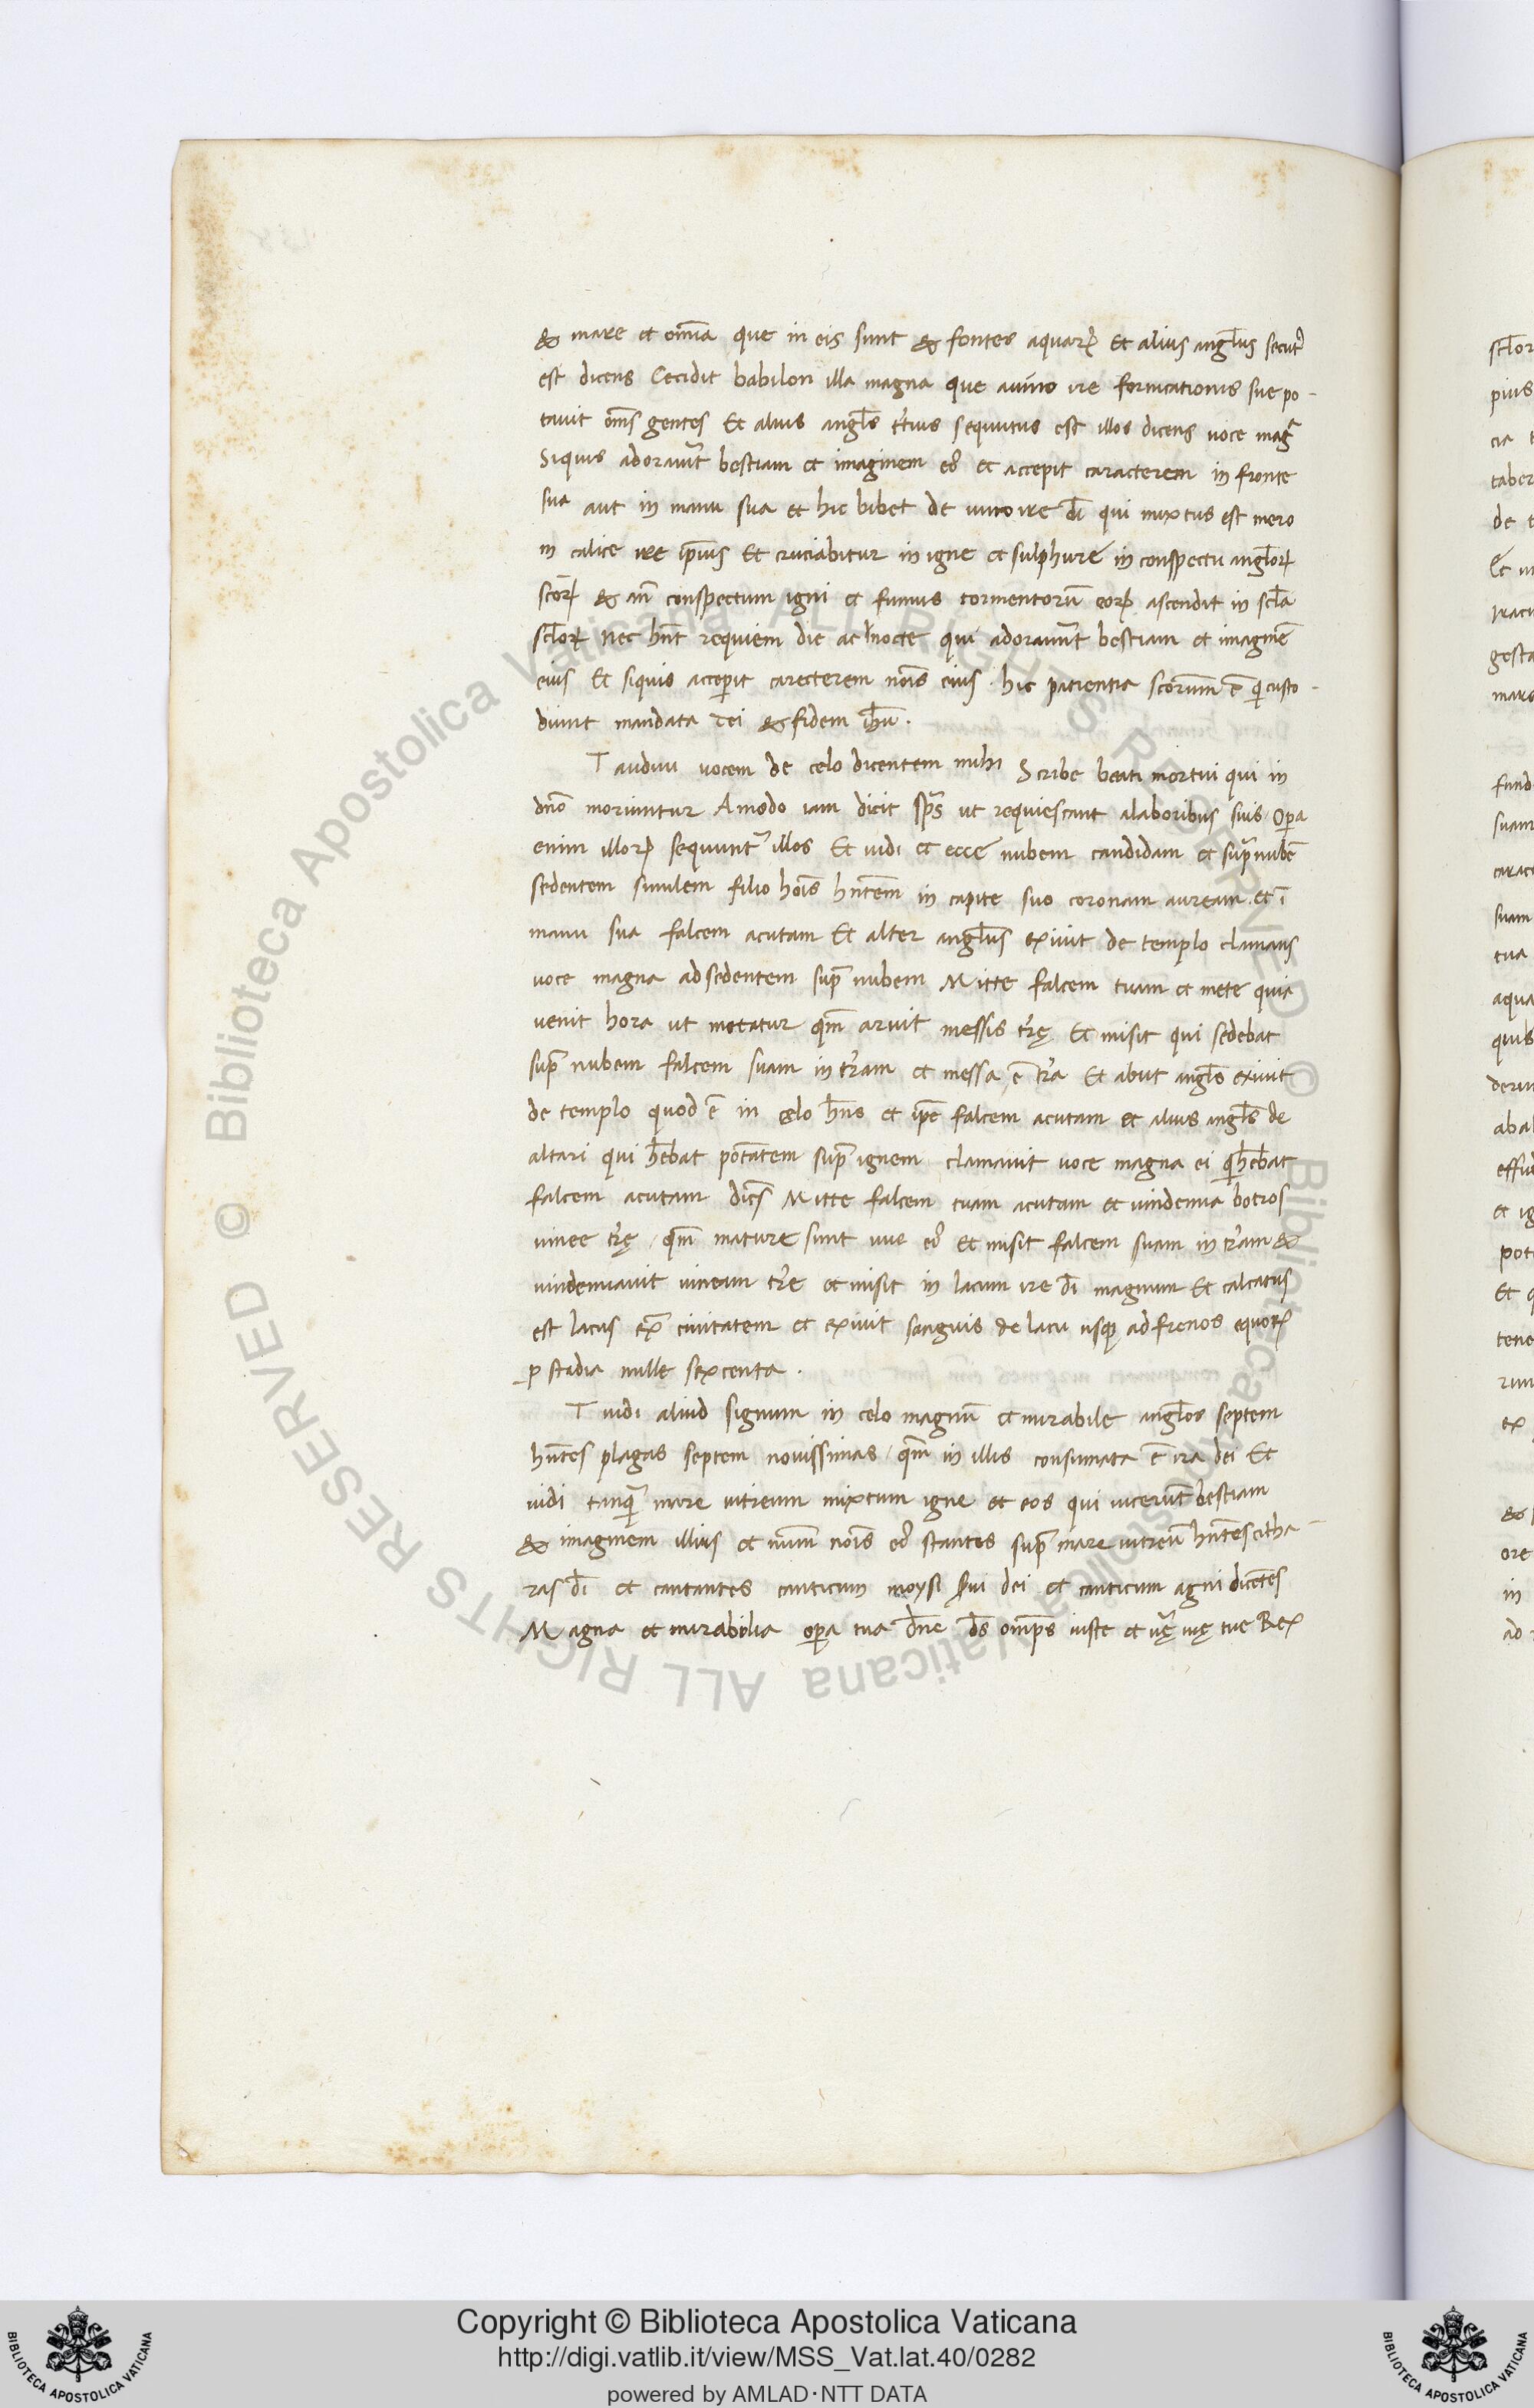 & mare et om̅ia que in eis sunt & fontes aquaꝝ Et alius angl̅us secut᷒
est dicens Cecidit babilon illa magna que auino ire fornicationis sue po-
tauit om̅s gentes Et alius angl̅s t̅rtius sequutus est illos dicens uoce mag̅
Siquis adorau̅it bestiam et imaginem ei᷒ et accepit caracterem in fronte
sua aut in manu sua et hic bibet de uino ire di̅ qui mixtus est mero
in calice ire ip̅ius Et cruciabitur in igne et sulphure in conspectu angl̅oꝝ
sc̅oꝝ & an̅ conspectum igni et fumus tormentoru̅ eoꝝ ascendit in scl̅a
scl̅oꝝ Nec hn̅t requiem die ac nocte qui adorauu̅t bestiam et imagine̅
eius Et siquis acceperit carecterem no̅is eius. hic patientia scorum̅ e̅ q̅ custo-
diunt mandata dei & fidem ih̅u.
T audiui uocem de celo dicentem mihi Scribe beati mortui qui in
dn̅o moriuntur Amodo iam dicit sp̅s ut requiescant alaboribus suis Op̅a
enim illoꝝ sequunt᷒ illos Et uidi et ecce nubem candidam et sup̅ nube̅
sedentem similem filio ho̅is hn̅tem in capite suo coronam auream et i̅
manu sua falcem acutam Et alter angl̅us exiuit de templo clamans
uoce magna adsedentem sup̅ nubem Mitte falcem tuam et mete quia
uenit hora ut metatur qm̅ aruit messis tr̅ę Et misit qui sedebat
sup̅ nubem falcem suam in tr̅am et messa e̅ tr̅a Et aliut angl̅s exiuit
de templo quod e̅ in celo h̅ns et ip̅e falcem acutam et alius angl̅s de
altari qui h̅ebat pot̅atem sup̅ ignem clamauit uoce magna ei q̅ h̅ebat
falcem acutam dic̅s Mitte falcem tuam acutam et uindemia botros
uinee tr̅ę qm̅ mature sunt uue ei᷒ Et misit falcem suam in tr̅am &
uindemiauit uineam tr̅e et misit in lacum ire di̅ magnum Et calcatus
est lacus ex̅ ciuitatem et exiuit sanguis de lacu usqꝫ adfrenos equoꝝ
ꝑ stadia mille sexcenta.
T uidi aliud signum in celo magnu̅ et mirabile angl̅os septem
hn̅tes plagas septem nouissimas qm̅ in illis consumata e̅ ira dei Et
uidi tanq̅ mare uitreum mixtum igne et eos qui uicerunt bestiam
& imaginem illius et num̅ no̅is ei᷒ stantes sup̅ mare uitreu̅ hn̅tes citha-
ras di̅ et cantantes canticum moysi s̅ui dei et canticum agni dice̅tes
Magna et mirabilia op̅a tua dn̅e ds̅ omp̅s iuste et u̅ę uię tue Rex
Copyright © Biblioteca Apostolica Vaticana
http://digi.vatlib.it/view/MSS_Vat.lat.40/0282
powered by AMLAD·NTT DATA